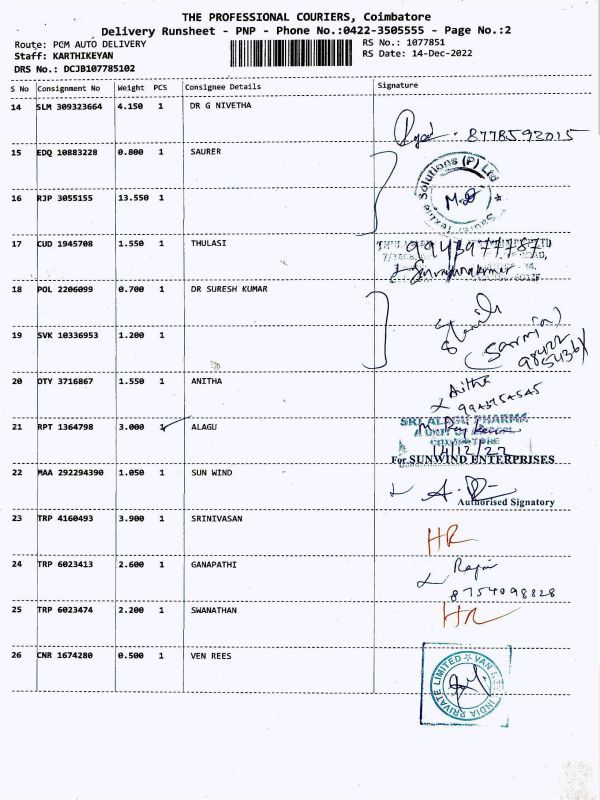 THE PROFESSIONAL COURIERS, Coimbatore
Delivery Runsheet - PNP - Phone No.:0422-3505555 - Page No.:2
Route: PCM AUTO DELIVERY RS No.: 1077851
Staff: KARTHIKEYAN RS Date: 14-Dec-2022
DRS No.: DCJB107785102
S No Consignment No Weight PCS Consignee Details Signature
14 SLM 309323664 4.150 1 DR G NIVETHA
8778592015
15 EDQ 10883228 0.800 1 SAURER
Solutions (P) Ltd
16 RJP 3055155 13.550 1
17 CUD 1945708 1.550 1 THULASI
9943977787
18 POL 2206099 0.700 1 DR SURESH KUMAR
19 SVK 10336953 1.200 1
20 DTY 3716867 1.550 1 ANITHA
Anitha
21 RPT 1364798 3.000 1 ALAGU
SRI ALAGU PHARMA
COIMBATORE
14/12/22
For SUNWIND ENTERPRISES
22 MAA 292294390 1.050 1 SUN WIND
Authorised Signatory
23 TRP 4160493 3.900 1 SRINIVASAN
HR
24 TRP 6023413 2.600 1 GANAPATHI
8754098828
25 TRP 6023474 2.200 1 SWANATHAN
HR
26 CNR 1674280 0.500 1 VEN REES
INDIA PRIVATE LIMITED